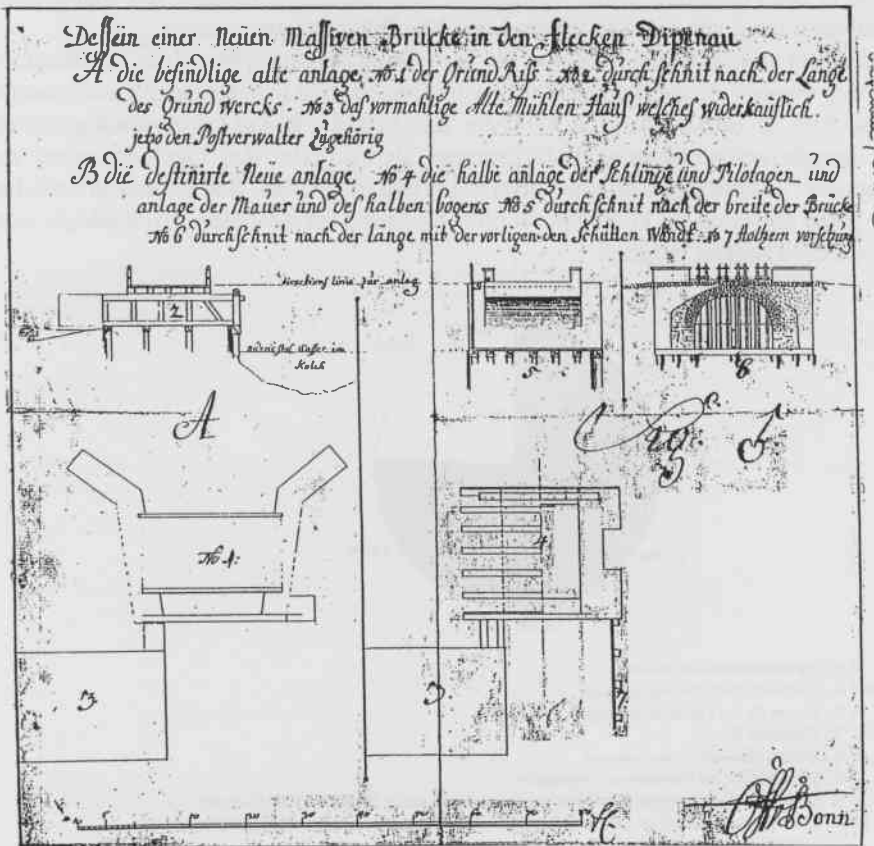 Dessein einer Neuen Massiven Brücke in den flecken Dipenau
A die befindlige alte anlage. No. 1 der Grund Riss No 2 durch schnit nach der Länge
des Grund wercks. No 3 das vormahlige Alte Mühlen Haus welches widerkauflich.
jetzo den Postverwalter Zugehörig
B die destinirte Neue anlage. No 4 die halbe anlage der Schlinge und Pilotagen und
anlage der Mauer und des halben bogens No 5 durch schnit nach der breite der Brücke
No 6 durchschnit nach der länge mit der vorligenden Schütten Wandt. No 7 Holtzern vorsetzung
linie zur anlag
2
wasser im
Kolck
5
6
A
B
No 1:
4
3
3
7
Bonn